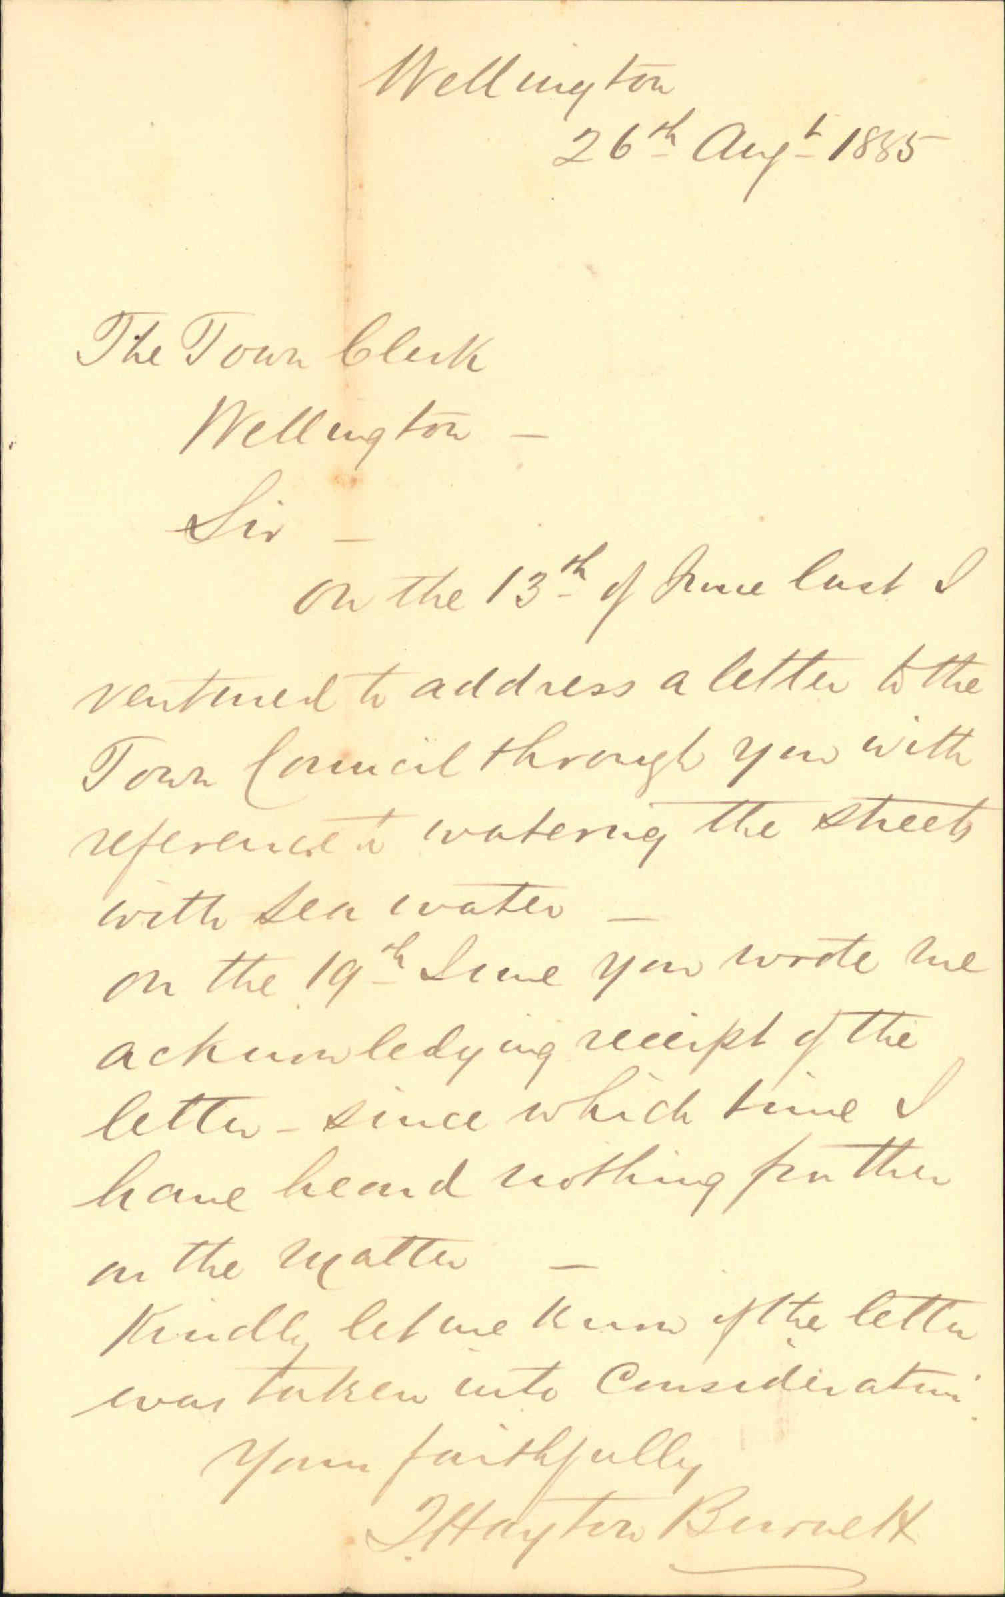 Wellington
26th Augt 1885
The Town Clerk
Wellington —
Sir —
On the 13th of June last I
ventured to address a letter to the
Town Council through you with
reference to watering the streets
with sea water —
On the 19th June you wrote me
acknowledging receipt of the
letter - since which time I
have heard nothing further
on the matter —
Kindly let me know if the letter
was taken into consideration.
Yours faithfully
Hayton Burnett